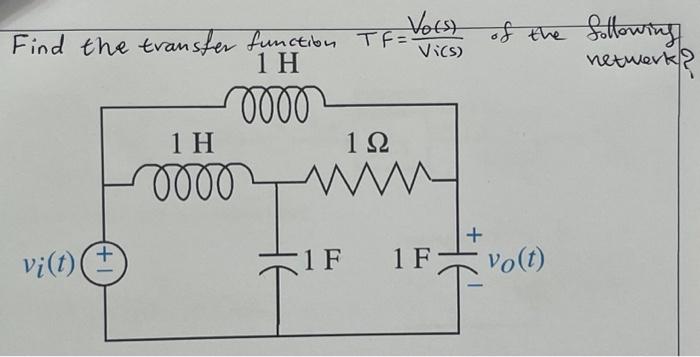 Find the transfer function TF = Vo(s)/Vi(s) of the following network?
1 H
1 H 1 Ω
vi(t) + − 1 F 1 F + vo(t) −